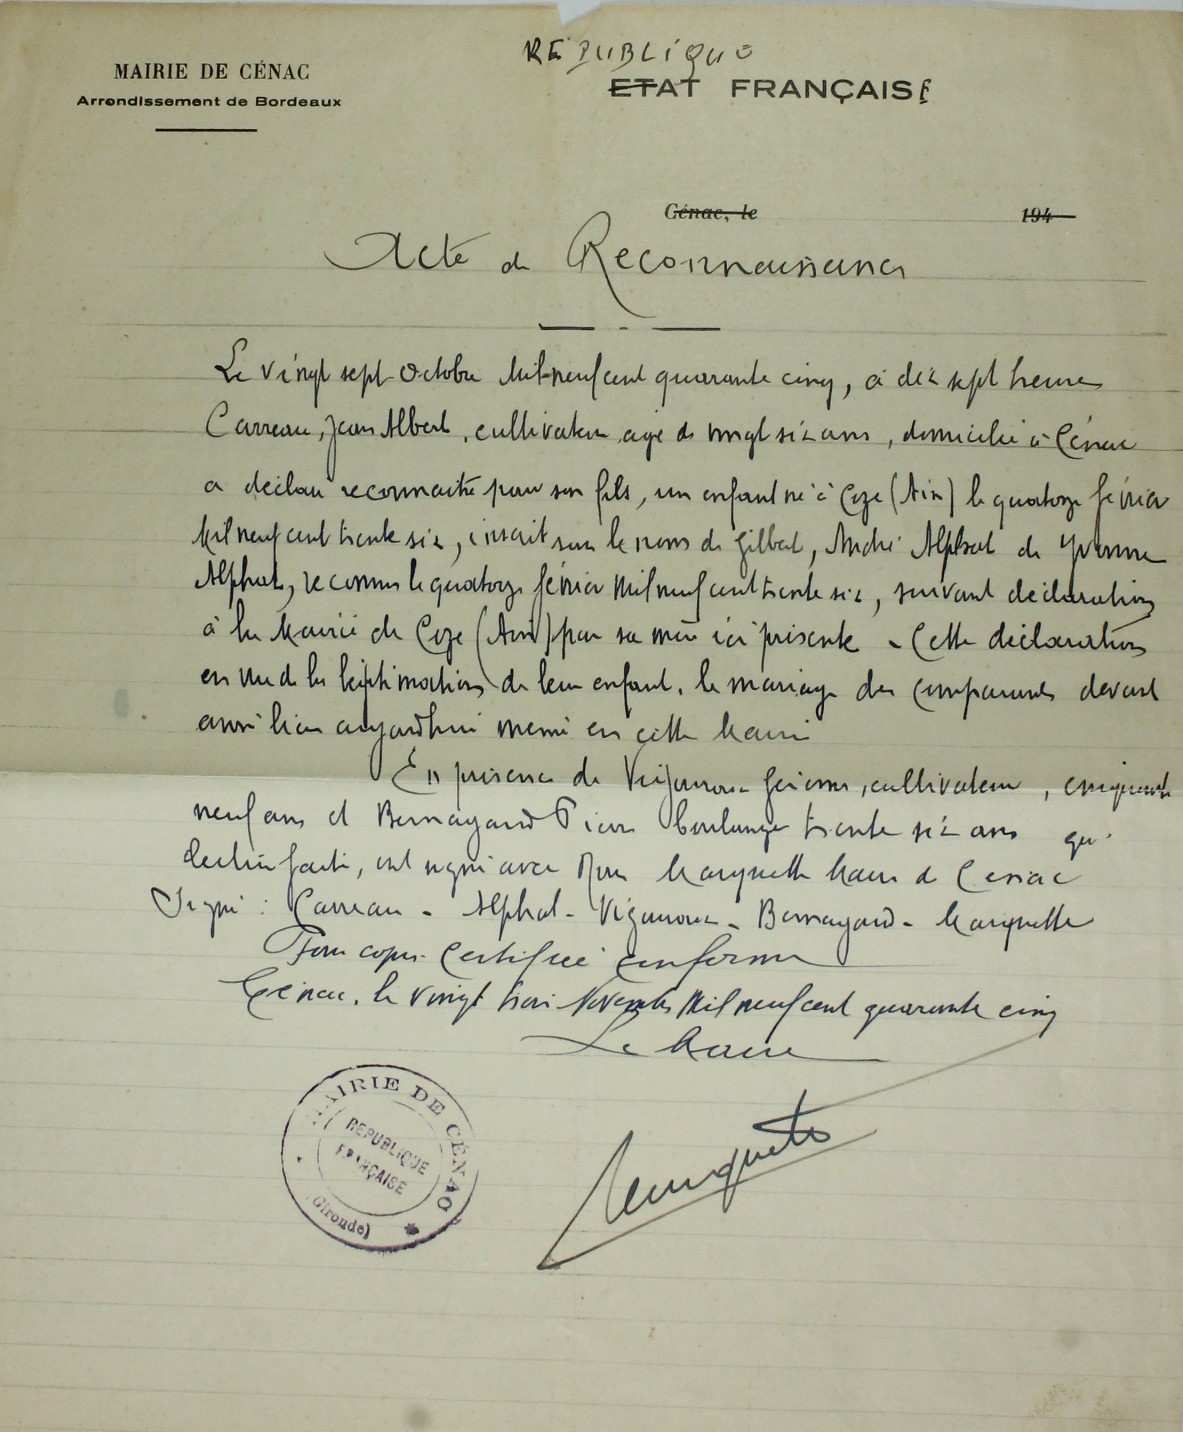 MAIRIE DE CÉNAC
Arrondissement de Bordeaux
REPUBLIQUE
ETAT FRANÇAISE
Cénac, le 194
Acte de Reconnaissance
Le vingt sept Octobre Mil neuf cent quarante cinq, à dix sept heures
Carreau, Jean Albert, cultivateur, agé de vingt six ans, domicilié à Cénac
a déclaré reconnaitre pour son fils, un enfant né à (Ain) le quatorze février
Mil neuf cent trente six, inscrit sous le nom de Gilbert, André Alphat de Yvonne
Alphat, reconnu le quatorze février Mil neuf cent trente six, suivant déclaration
à la Mairie de (Ain) par sa mère ici présente - Cette déclaration
en vue de la légitimation de leur enfant, le mariage des comparants devant
avoir lieu aujourd'hui meme en cette Mairie
En présence de Vigouroux, cultivateur, cinquante
neuf ans et Bernayard Pierre boulanger trente six ans qui
lecture faite, ont signé avec Nous Marquette Maire de Cénac
Signé : Carreau - Alphat - Vigouroux - Bernayard - Marquette
Pour copie certifiée conforme
Cénac, le vingt trois Novembre Mil neuf cent quarante cinq
Le Maire
MAIRIE DE CÉNAC
REPUBLIQUE
FRANÇAISE
(Gironde)